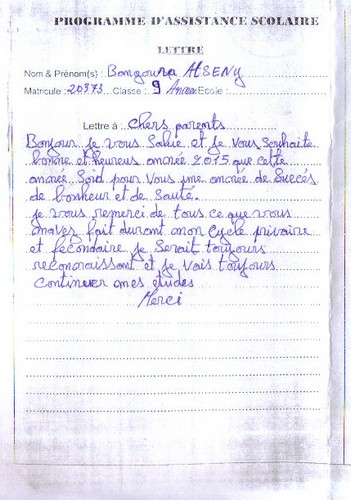 PROGRAMME D'ASSISTANCE SCOLAIRE
LETTRE
Nom & Prénom(s) : Bangoura AlSENY
Matricule : 20573 Classe : 9 Année Ecole :
Lettre à : chers parents
Bonjour je vous Salue et je vous Souhaite
bonne et heureus année 2015 que cette
année Soid pour Vous une année de Succés
de bonheur et de Santé.
je vous remerci de tous ce que vous
m'avez fait durant mon cycle privaire
et secondaire je Serait toujours
reconnaissant et je vais toujours
continuer mes etudes
Merci